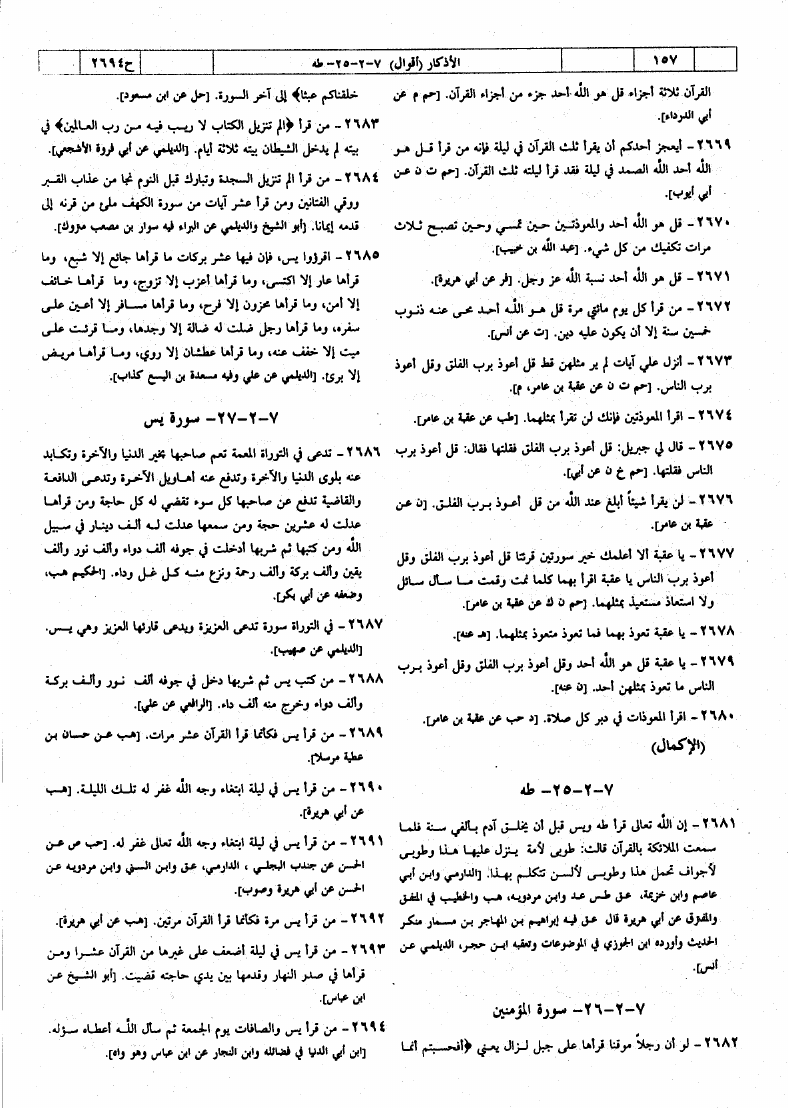 ١٥٧
الأذكار (أقوال) ٧-٢-٢٥- طه
ح٢٦٩٤
القرآن ثلاثة أجزاء قل هو اللّه أحد جزء من أجزاء القرآن. [حم م عن
أبي الدرداء].
٢٦٦٩- أيعجز أحدكم أن يقرأ ثلث القرآن في ليلة فإنه من قرأ قـل هـو
اللّه أحد اللّه الصمد في ليلة فقد قرأ ليلته ثلث القرآن. [حم ت ن عـن
أبي أيوب].
٢٦٧٠- قل هو اللّه أحد والمعوذتـين حـين تمسي وحـين تصبـح ثـلاث
مرات تكفيك من كل شيء. [عبد اللّه بن خبيب].
٢٦٧١- قل هو اللّه أحد نسبة اللّه عز وجل. [فر عن أبي هريرة].
٢٦٧٢- من قرأ كل يوم مائتي مرة قل هـو اللّـه أحـد محـى عنـه ذنـوب
خمسين سنة إلا أن يكون عليه دين. [ت عن أنس].
٢٦٧٣- أنزل علي آيات لم ير مثلهن قط قل أعوذ برب الفلق وقل أعوذ
برب الناس. [حم ت ن عن عقبة بن عامر، م].
٢٦٧٤- اقرأ المعوذتين فإنك لن تقرأ بمثلهما. [طب عن عقبة بن عامر].
٢٦٧٥- قال لي جبريل: قل أعوذ برب الفلق فقلتها فقال: قل أعوذ برب
الناس فقلتها. [حم خ ن عن أبي].
٢٦٧٦- لن يقرأ شيئاً أبلغ عند اللّه من قل أعـوذ بـرب الفلـق. [ن عـن
عقبة بن عامر].
٢٦٧٧- يا عقبة ألا أعلمك خير سورتين قرئتا قل أعوذ برب الفلق وقل
أعوذ برب الناس يا عقبة اقرأ بهما كلما نمت وقمت مـا سـأل سـائل
ولا استعاذ مستعيذ بمثلهما. [حم ن ك عن عقبة بن عامر].
٢٦٧٨- يا عقبة تعوذ بهما فما تعوذ متعوذ بمثلهما. [هـ عنه].
٢٦٧٩- يا عقبة قل هو اللّه أحد وقل أعوذ برب الفلق وقل أعوذ بـرب
الناس ما تعوذ بمثلهن أحد. [ن عنه].
٢٦٨٠- اقرأ المعوذات في دبر كل صلاة. [د حب عن عقبة بن عامر].
(الإكمال)
٧-٢-٢٥- طه
٢٦٨١- إن اللّه تعالى قرأ طه ويس قبل أن يخلـق آدم بـألفي سـنة فلمـا
سمعت الملائكة بالقرآن قالت: طوبى لأمة يـنزل عليهـا هـذا وطوبـى
لأجواف تحمل هذا وطوبـى لألسـن تتكلـم بهـذا. [الدارمي وابن أبي
عاصم وابن خزيمة، عـق طس عـد وابن مردويه، هب والخطيب في المتفق
والمفترق عن أبي هريرة قال عـق فيـه إبراهيم بـن المهاجر بـن مسـمار منكـر
الحديث وأورده ابن الجوزي في الموضوعات وتعقبه ابـن حجر، الديلمي عـن
أنس].
٧-٢-٢٦- سورة المؤمنين
٢٦٨٢- لو أن رجلاً موقنا قرأها على جبل لـزال يعـني ﴿أفحسبتم أنمـا
خلقناكم عبثا﴾ إلى آخر السورة. [حل عن ابن مسعود].
٢٦٨٣- من قرأ ﴿الم تنزيل الكتاب لا ريـب فيـه مـن رب العـالمين﴾ في
بيته لم يدخل الشيطان بيته ثلاثة أيام. [الديلمي عن أبي فروة الأشجعي].
٢٦٨٤- من قرأ الم تنزيل السجدة وتبارك قبل النوم نجا من عذاب القـبر
ووقي الفتانين ومن قرأ عشر آيات من سورة الكهف ملئ من قرنه إلى
قدمه إيمانا. [أبو الشيخ والديلمي عن البراء فيه سوار بن مصعب متروك].
٢٦٨٥- اقرؤوا يس، فإن فيها عشر بركات ما قرأها جائع إلا شبع، وما
قرأها عار إلا اكتسى، وما قرأها أعزب إلا تزوج، وما قرأهـا خـائف
إلا أمن، وما قرأها محزون إلا فرح، وما قرأها مسـافر إلا أعـين علـى
سفره، وما قرأها رجل ضلت له ضالة إلا وجدها، ومـا قرئـت علـى
ميت إلا خفف عنه، وما قرأها عطشان إلا روي، ومـا قـرأها مريـض
إلا برئ. [الديلمي عن علي وفيه مسعدة بن اليسع كذاب].
٧-٢-٢٧- سورة يس
٢٦٨٦- تدعى في التوراة المعمة تعم صاحبها بخير الدنيا والآخرة وتكـابد
عنه بلوى الدنيا والآخرة وتدفع عنه أهـاويل الآخـرة وتدعـى الدافعـة
والقاضية تدفع عن صاحبها كل سوء تقضي له كل حاجة ومن قرأهـا
عدلت له عشرين حجة ومن سمعها عدلت لـه ألـف دينـار في سـبيل
اللّه ومن كتبها ثم شربها أدخلت في جوفه ألف دواء وألف نور وألف
يقين وألف بركة وألف رحمة ونزع منـه كـل غـل وداء. [الحكيـم هب،
وضعفه عن أبي بكر].
٢٦٨٧- في التوراة سورة تدعى العزيزة ويدعى قارئها العزيز وهي يـس.
[الديلمي عن صهيب].
٢٦٨٨- من كتب يس ثم شربها دخل في جوفه ألف نـور وألـف بركـة
وألـف دواء وخرج منه ألف داء. [الرافعي عن علي].
٢٦٨٩- من قرأ يس فكأنما قرأ القرآن عشر مرات. [هب عـن حسان بن
عطية مرسلا].
٢٦٩٠- من قرأ يس في ليلة ابتغاء وجه اللّه غفر له تلـك الليلـة. [هـب
عن أبي هريرة].
٢٦٩١- من قرأ يس في ليلة ابتغاء وجه اللّه تعالى غفر له. [حب ص عـن
الحسن عن جندب البجلي، الدارمي، عـق وابن السني وابن مردويه عـن
الحسن عن أبي هريرة وصوب].
٢٦٩٢- من قرأ يس مرة فكأنما قرأ القرآن مرتين. [هب عن أبي هريرة].
٢٦٩٣- من قرأ يس في ليلة أضعف على غيرها من القرآن عشـرا ومـن
قرأها في صدر النهار وقدمها بين يدي حاجته قضيت. [أبو الشـيخ عـن
ابن عباس].
٢٦٩٤- من قرأ يس والصافات يوم الجمعة ثم سأل اللّـه أعطـاه سـؤله.
[ابن أبي الدنيا في فضائله وابن النجار عن ابن عباس وهو واه].